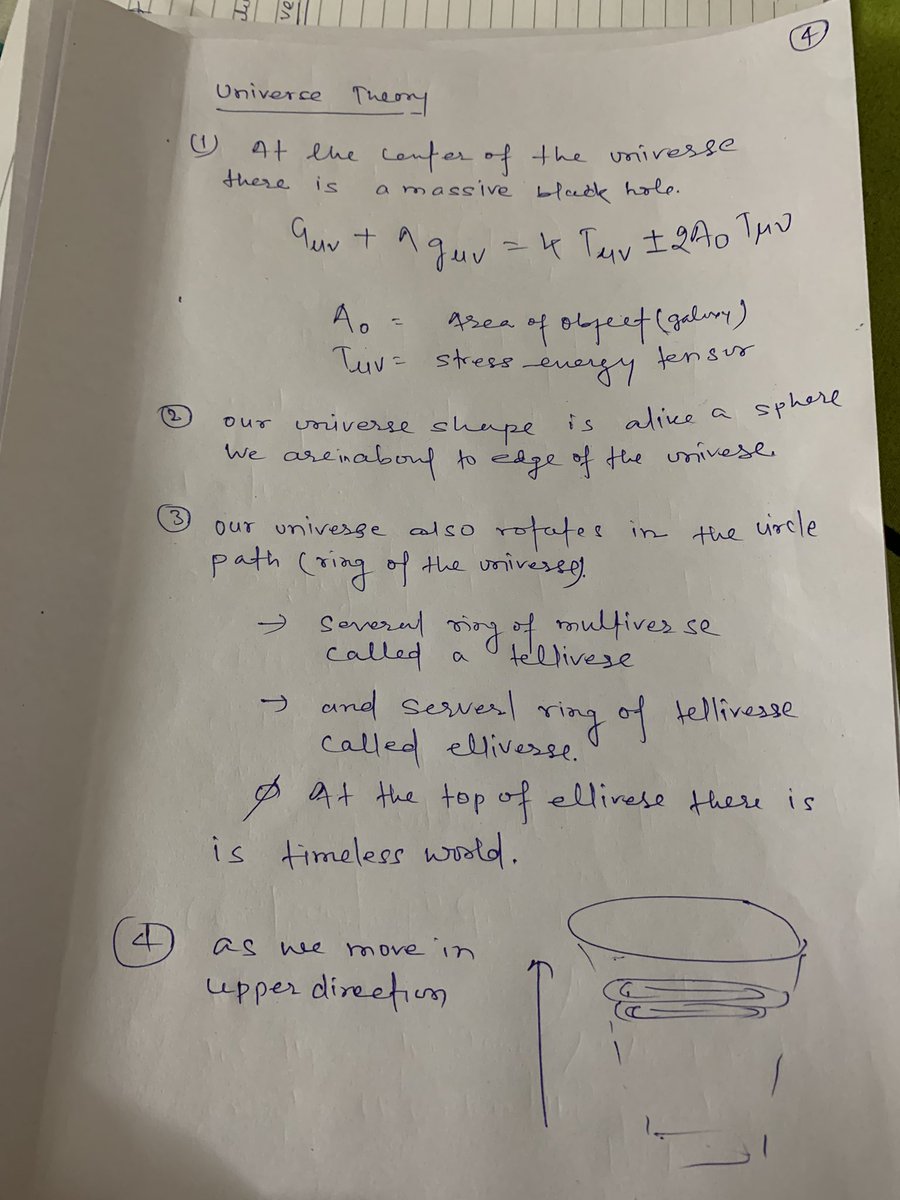 4
Universe Theory
(1) At the center of the universe
there is a massive black hole.
Guv + Λ guv = k Tuv ± 2A0 Tμν
A0 = Area of object (galaxy)
Tuv = stress energy tensor
(2) our universe shape is alike a sphere
We are in about to edge of the univese.
(3) our universe also rotates in the circle
path (ring of the universe).
→ several ring of multiverse
called a tellivese
→ and serverl ring of tellivesse
called elliverse.
At the top of ellivese there is
is timeless world.
(4) as we move in
upper direction